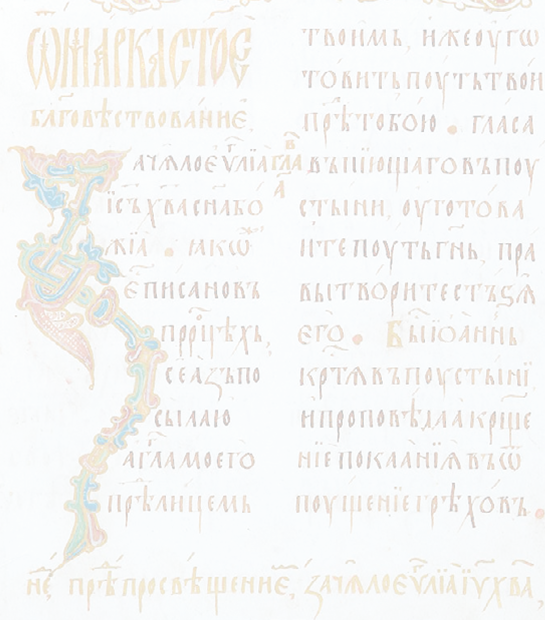 Ѿ МАРКА СТОЕ
БЛГОВѢСТВОВАНИЕ.
ЗАЧАЛО ЕУЛІА ГЛАВА А
ІСЪ ХВА СНА БО
ЖІА. ІАКѠ
Е ПИСАНО ВЪ
ПРРЦѢХЪ,
СЕ АЗЪ ПО
СЫЛАЮ
АГГЛА МОЕГО
ПРѢ ЛИЦЕМЬ
ТВОИМЪ, ИЖЕ ОУГѠ
ТОВИТЬ ПОУТЬ ТВОИ
ПРѢ ТОБОЮ. ГЛАСА
ВЪПІЮЩАГО ВЪ ПОУ
СТЫНИ, ОУГОТОВА
ИТЕ ПОУТЬ ГНЬ, ПРА
ВЫ ТВОРИТЕ СТЪЅѦ
ЕГО. БЫ ІОАННЪ
КРТѦ ВЪ ПОУСТЫНІ
И ПРОПОВѢДАА КРЩЕ
НІЕ ПОКААНІѦ ВЪ Ѿ
ПОУЩЕНІЕ ГРѢХОВЪ.
НЕ, ПРѢ ПРОСВѢЩЕНИЕ, ЗАЧАЛО ЕУЛІА ІУ ХВА,